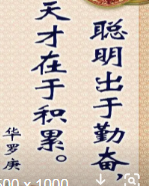 聪明出于勤奋，
天才在于积累。
华罗庚
500 x 1000